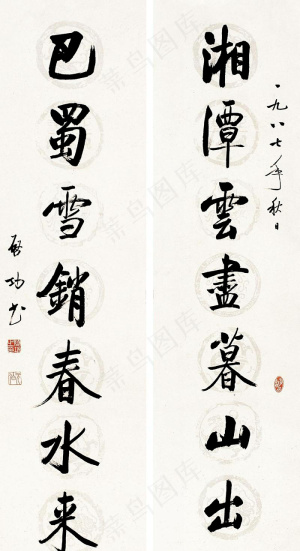 一九八七年秋日
湘潭雲盡暮山出
巴蜀雪銷春水来
啟功書
菜鸟图库